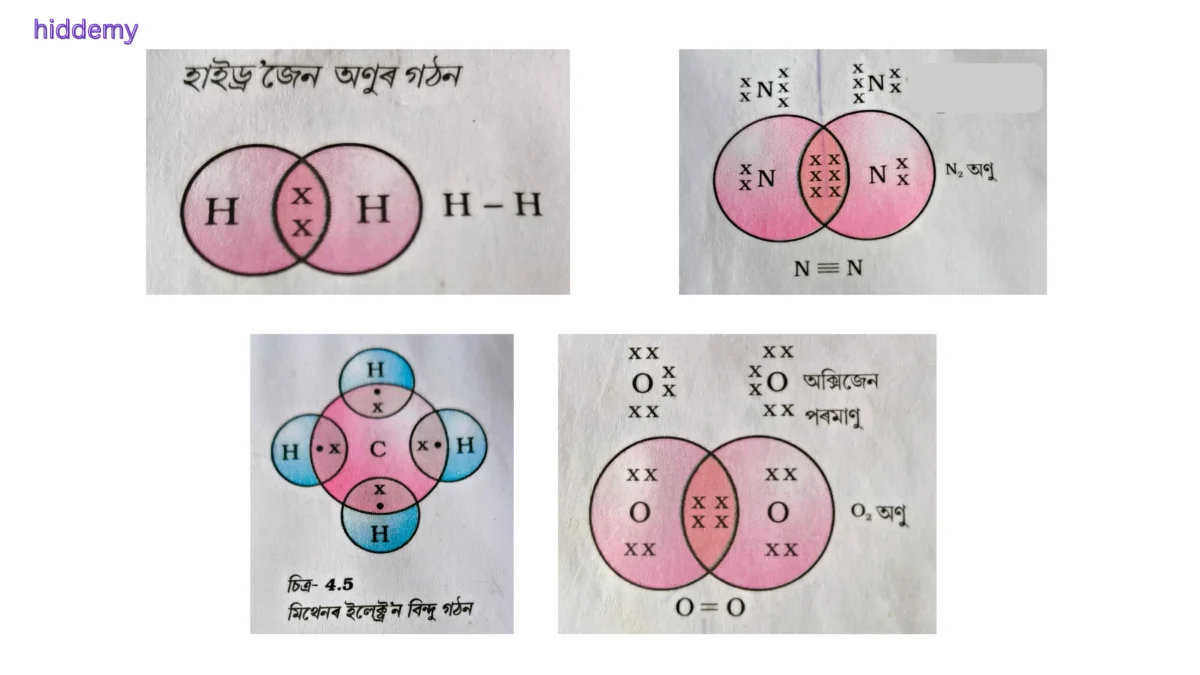 hiddemy
হাইড্ৰ'জেন অণুৰ গঠন
H x H H – H
x
x x N x x x x x x N x x
x x N x x x x x x N x x N₂ অণু
N ≡ N
H
• x
H • x C x • H
x •
H
চিত্ৰ- 4.5
মিথেনৰ ইলেক্ট্ৰন বিন্দু গঠন
x x x x
O x x x x O অক্সিজেন
x x x x পৰমাণু
x x x x
O x x x x O O₂ অণু
x x x x
O = O